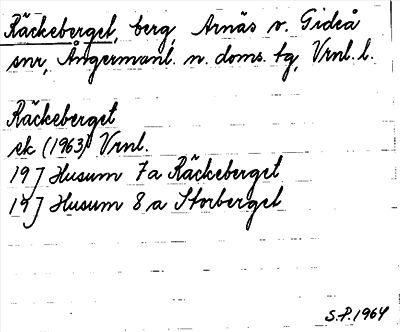 Räckeberget, berg, Arnäs o. Gideå
snr, Ångermanl. n. doms. tg, Vrnl. l.
Räckeberget
ek (1963) Vrnl.
19 J Husum 7a Räckeberget
19 J Husum 8a Storberget
S.P. 1964